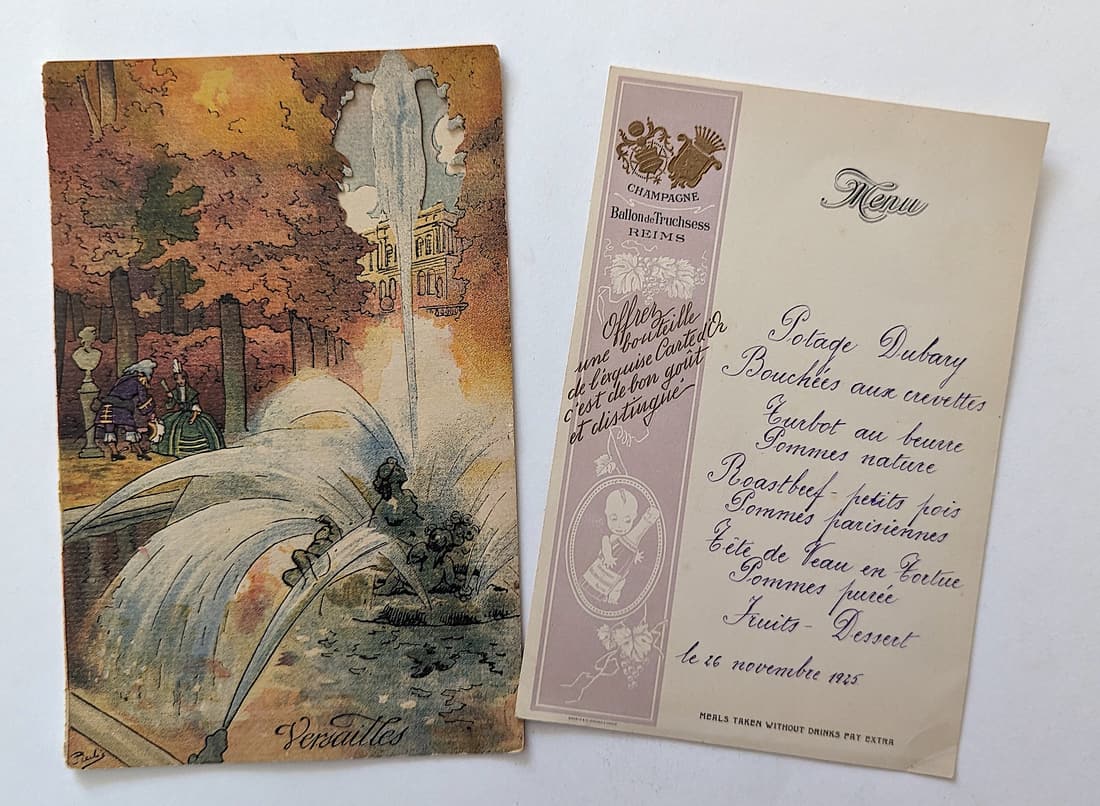 Versailles
CHAMPAGNE
Ballon de Truchsess
REIMS
Offrez
une bouteille
de l'exquise Carte d'Or
c'est de bon goût
et distingué
Menu
Potage Dubary
Bouchées aux crevettes
Turbot au beurre
Pommes nature
Roastbeef - petits pois
Pommes parisiennes
Tête de Veau en Tortue
Pommes purée
Fruits - Dessert
le 26 novembre 1925
MEALS TAKEN WITHOUT DRINKS PAY EXTRA